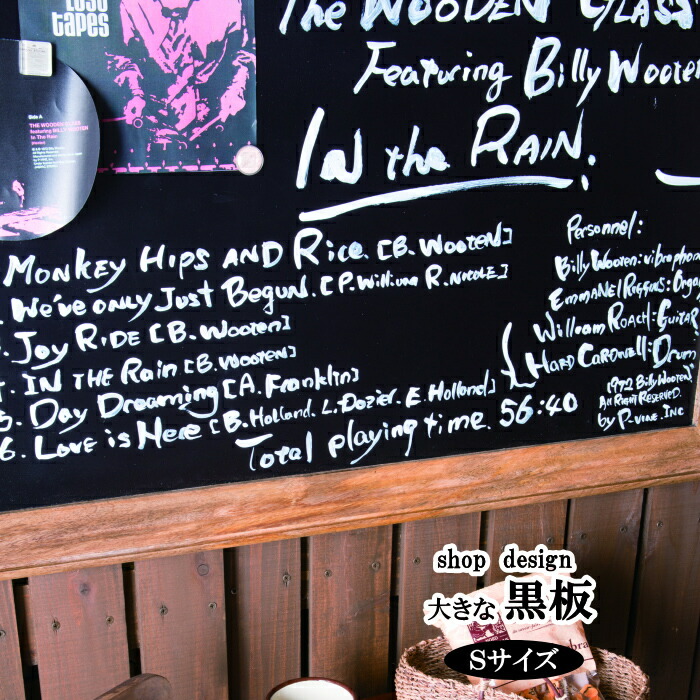 Lost
tapes
The WOODEN GLASS
Featuring Billy Wooten
In the RAIN.
Side A
THE WOODEN GLASS
featuring BILLY WOOTEN
In The Rain
Monkey Hips AND Rice [B. Wooten]
We've only Just Begun. [P. William R. Nicole]
Joy RIDE [B. Wooten]
IN THE Rain [B. WOOTEN]
5. Day Dreaming [A. Franklin]
6. Love is Here [B. Holland. L. Dozier. E. Holland]
Total playing time. 56:40
Personnel:
Billy Wooten: vibraphon
EMMANEL RIGGINS: Orga
William ROACH: GUITAR
HARD CARDWELL: Drum
1972 Billy Wooten
All Right Reserved.
by P-vine. INC
shop design
大きな黒板
Sサイズ